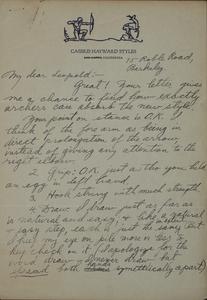 CASSIUS HAYWARD STYLES
75 Roble Road,
Berkeley
My dear Leopold:-
Great! Your letter gives
me a chance to find how exactly
archers can adopt the new style.
Your point on stance is O.K. I
think of the forearm as being in
direct prolongation of the arrow
instead of giving any attention to the
right elbow.
2 Grip: O.K. just as tho you held
an egg in left hand
3 Hook string with much strength
4 Draw: I draw just as far as
is natural and easy, & like a natural
& easy step, each is just the same, but
I put my eye on pile more or less to
key check on it. (I apologize for the
word draw - I never draw - but
spread both hands symetrically apart)